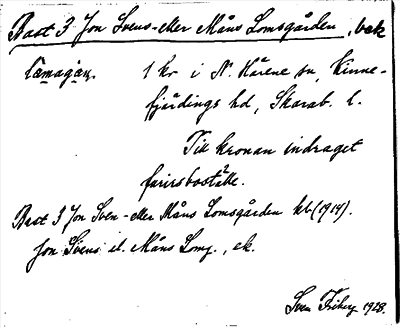 Bast 3 Jon Svens- eller Måns Lomsgården, bek
1 kr i N. Härene sn, Kinne-
fjärdings hd, Skarab. l.
Till kronan indraget
furirsboställe.
Bast 3 Jon Sven- eller Måns Lomsgården kb (1914).
Jon Svens el. Måns Lomg., ek.
Sven Friberg 1928.